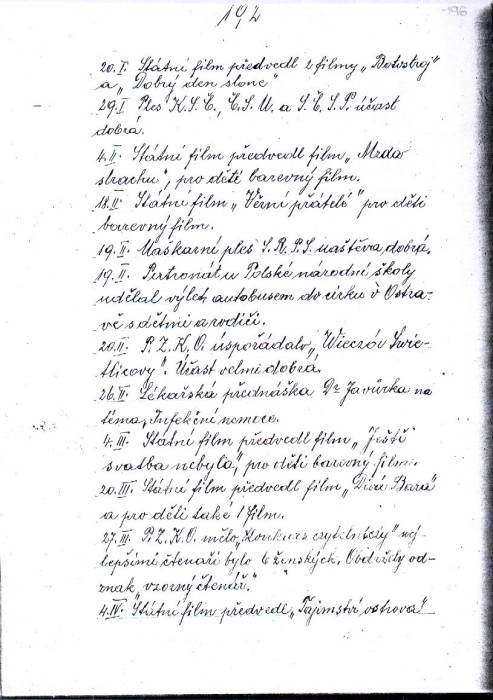 192
196
20. I. Státní film předvedl 2 filmy „Botostroj"
a „Dobrý den slone"
29. I Ples K.S.Č., Č.S.M. a S.Č.S.P. účast
dobrá.
4. II. Státní film předvedl film „Mzda
strachu", pro děti barevný film.
18. II. Státní film „Věrní přátelé" pro děti
barevný film.
19. II. Maškarní ples S.R.P.S. návštěva dobrá.
19. II. Patronát u Polské národní školy
udělal výlet autobusem do cirku v Ostra-
vě s dětmi a rodiči.
20. II. P.Z.K.O. uspořádalo „Wieczór Swie-
tlicovy". Účast velmi dobrá.
26. II. Lékařská přednáška Dr Javůrka na
téma, Infekční nemoce.
4. III. Státní film předvedl film „Ještě
svatba nebyla," pro děti barevný film.
20. III. Státní film předvedl film „Divá Bara"
a pro děti také 1 film.
27. III. P.Z.K.O. mělo „Konkurs czytelniczy" nej-
lepšími čtenáři bylo 6 ženských. Obdržely od-
znak „vzorný čtenář."
4. IV. Státní film předvedl „Tajimství ostrova"